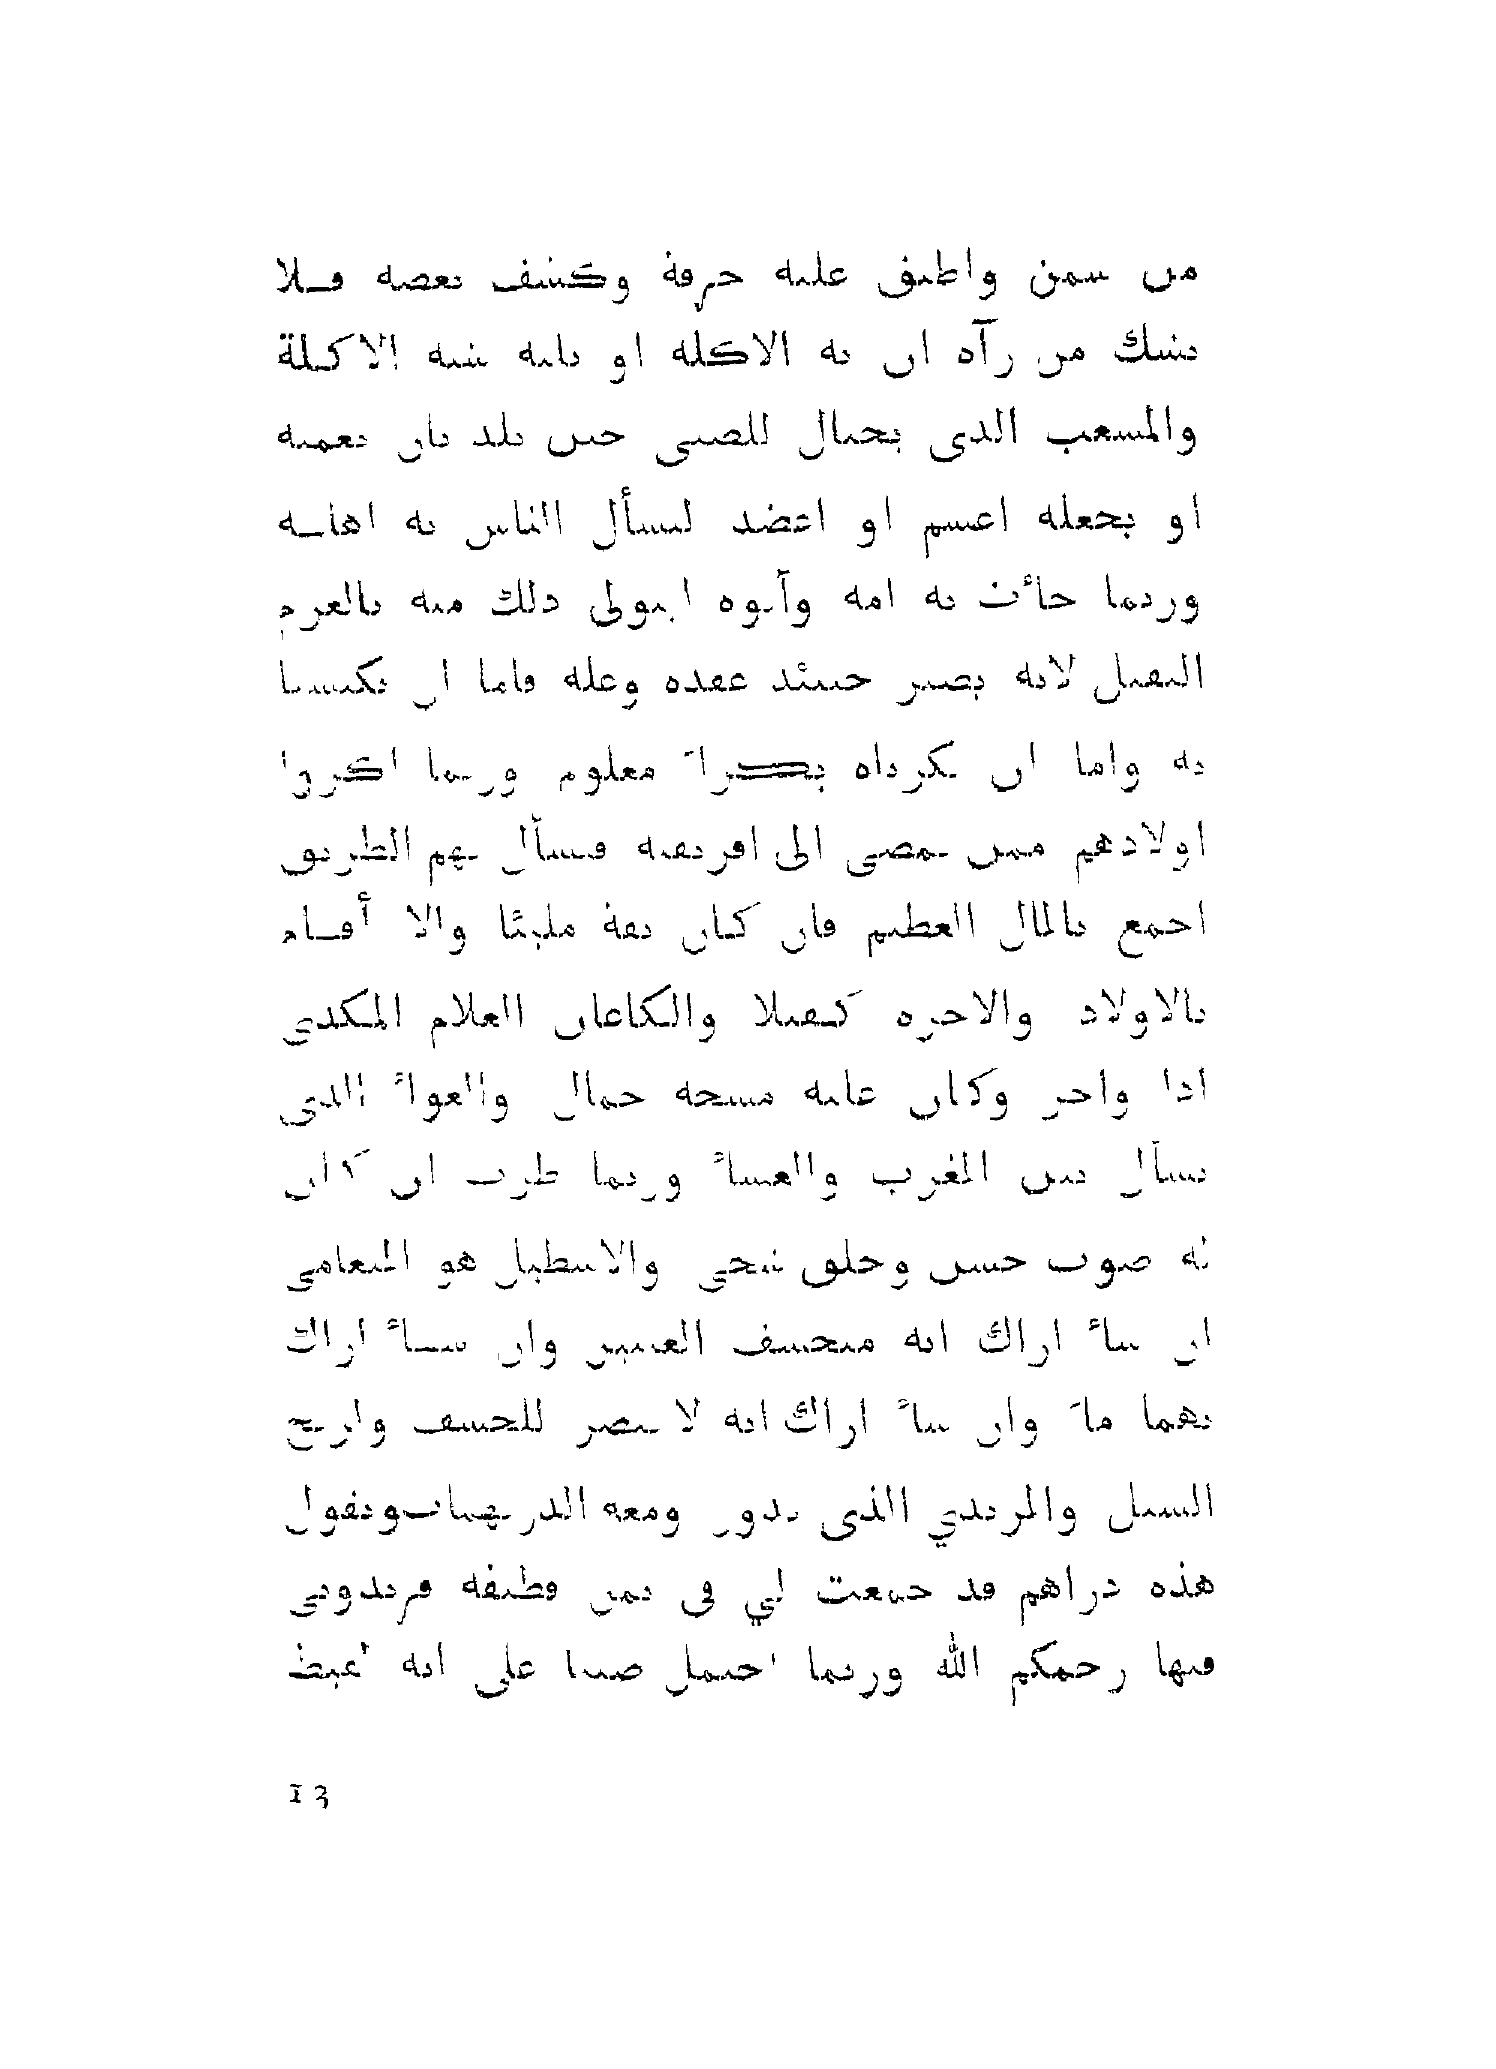 من سمن واطبق عليه خرقة وكشف بعضه فلا
يشك من رآه ان به الاكلة او بلية شبه الاكلة
والمشعب الذي يحتال للصبي حين يلد بان يعميه
او يجعله اعسم او اعضد ليسأل الناس به اهله
وربما جأت به امه وأبوه ليتولى ذلك منه بالغرم
الثقيل لانه يصير حينئذ عقده وغلة فاما ان يكتسبا
به واما ان يكرياه بكرا معلوم وربما اكروا
اولادهم ممن يمضي الى افريقية فيسأل بهم الطريق
اجمع بالمال العظيم فان كان ثقة مليئا والا أقام
بالاولاد والاجرة كفيلا والكاغان الغلام المكدي
اذا واجر وكان عليه مسحة جمال والعوأ الذي
يسأل بين المغرب والعشأ وربما طرب ان كان
له صوت حسن وحلق شجي والاسطيل هو المتعامي
ان شأ اراك انه منخسف العينين وان شأ اراك
بهما مأ وان شأ اراك انه لا يبصر للخسف وريح
السبل والمزيدي الذي يدور ومعه الدريهمات ويقول
هذه دراهم قد جمعت لي في ثمن قطيفة فزيدوني
فيها رحمكم الله وربما احتمل صبيا على انه لقيط
13